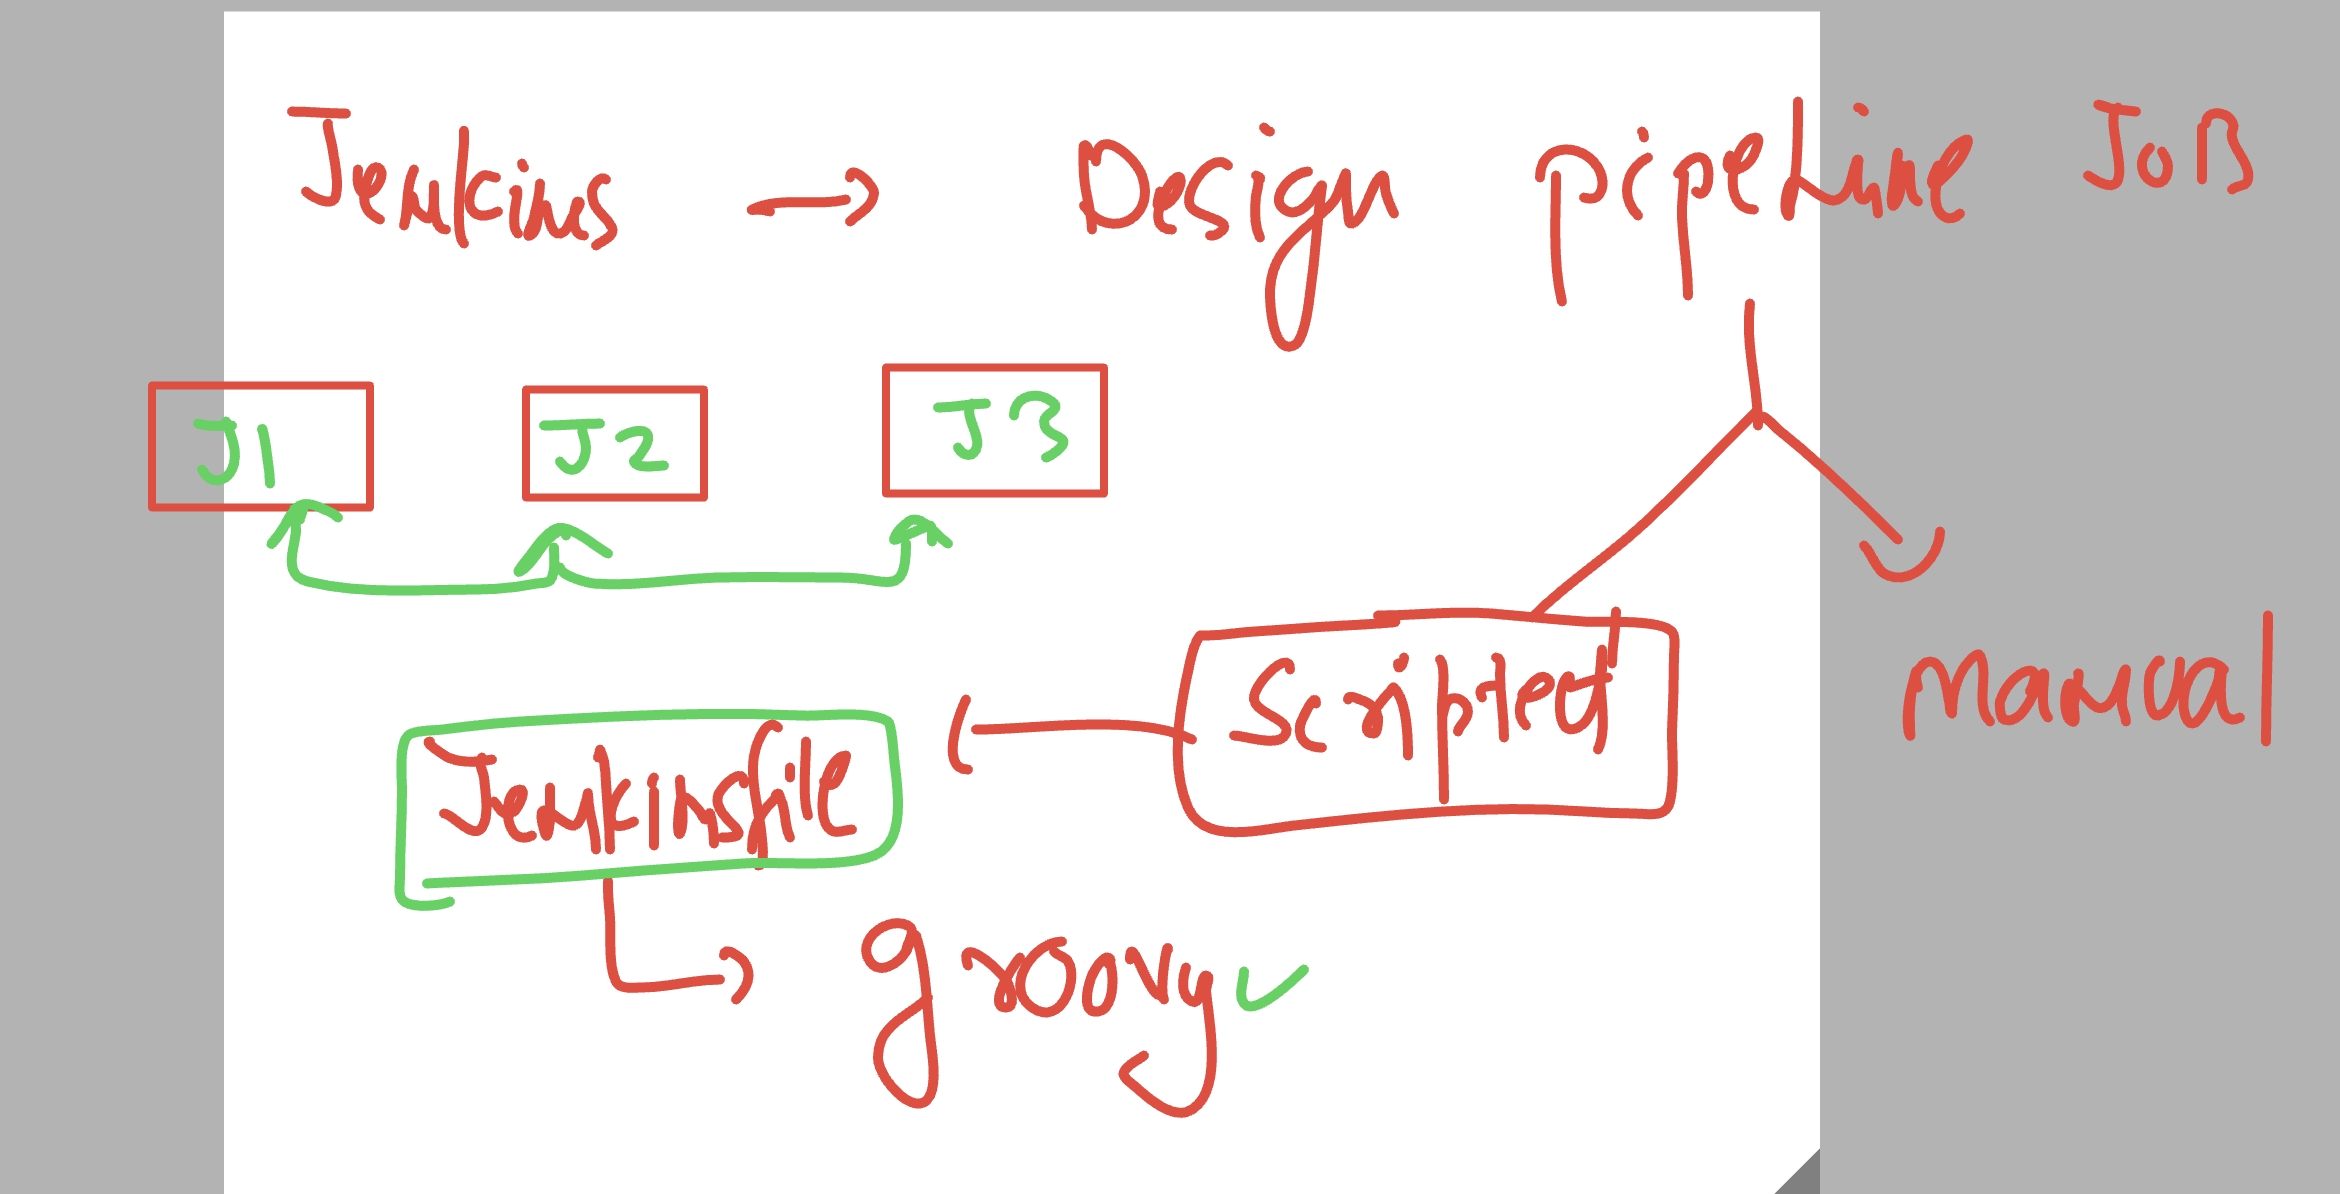 Jenkins → Design pipeline JoB
J1 J2 J3
Scripted
manual
Jenkinsfile
groovy